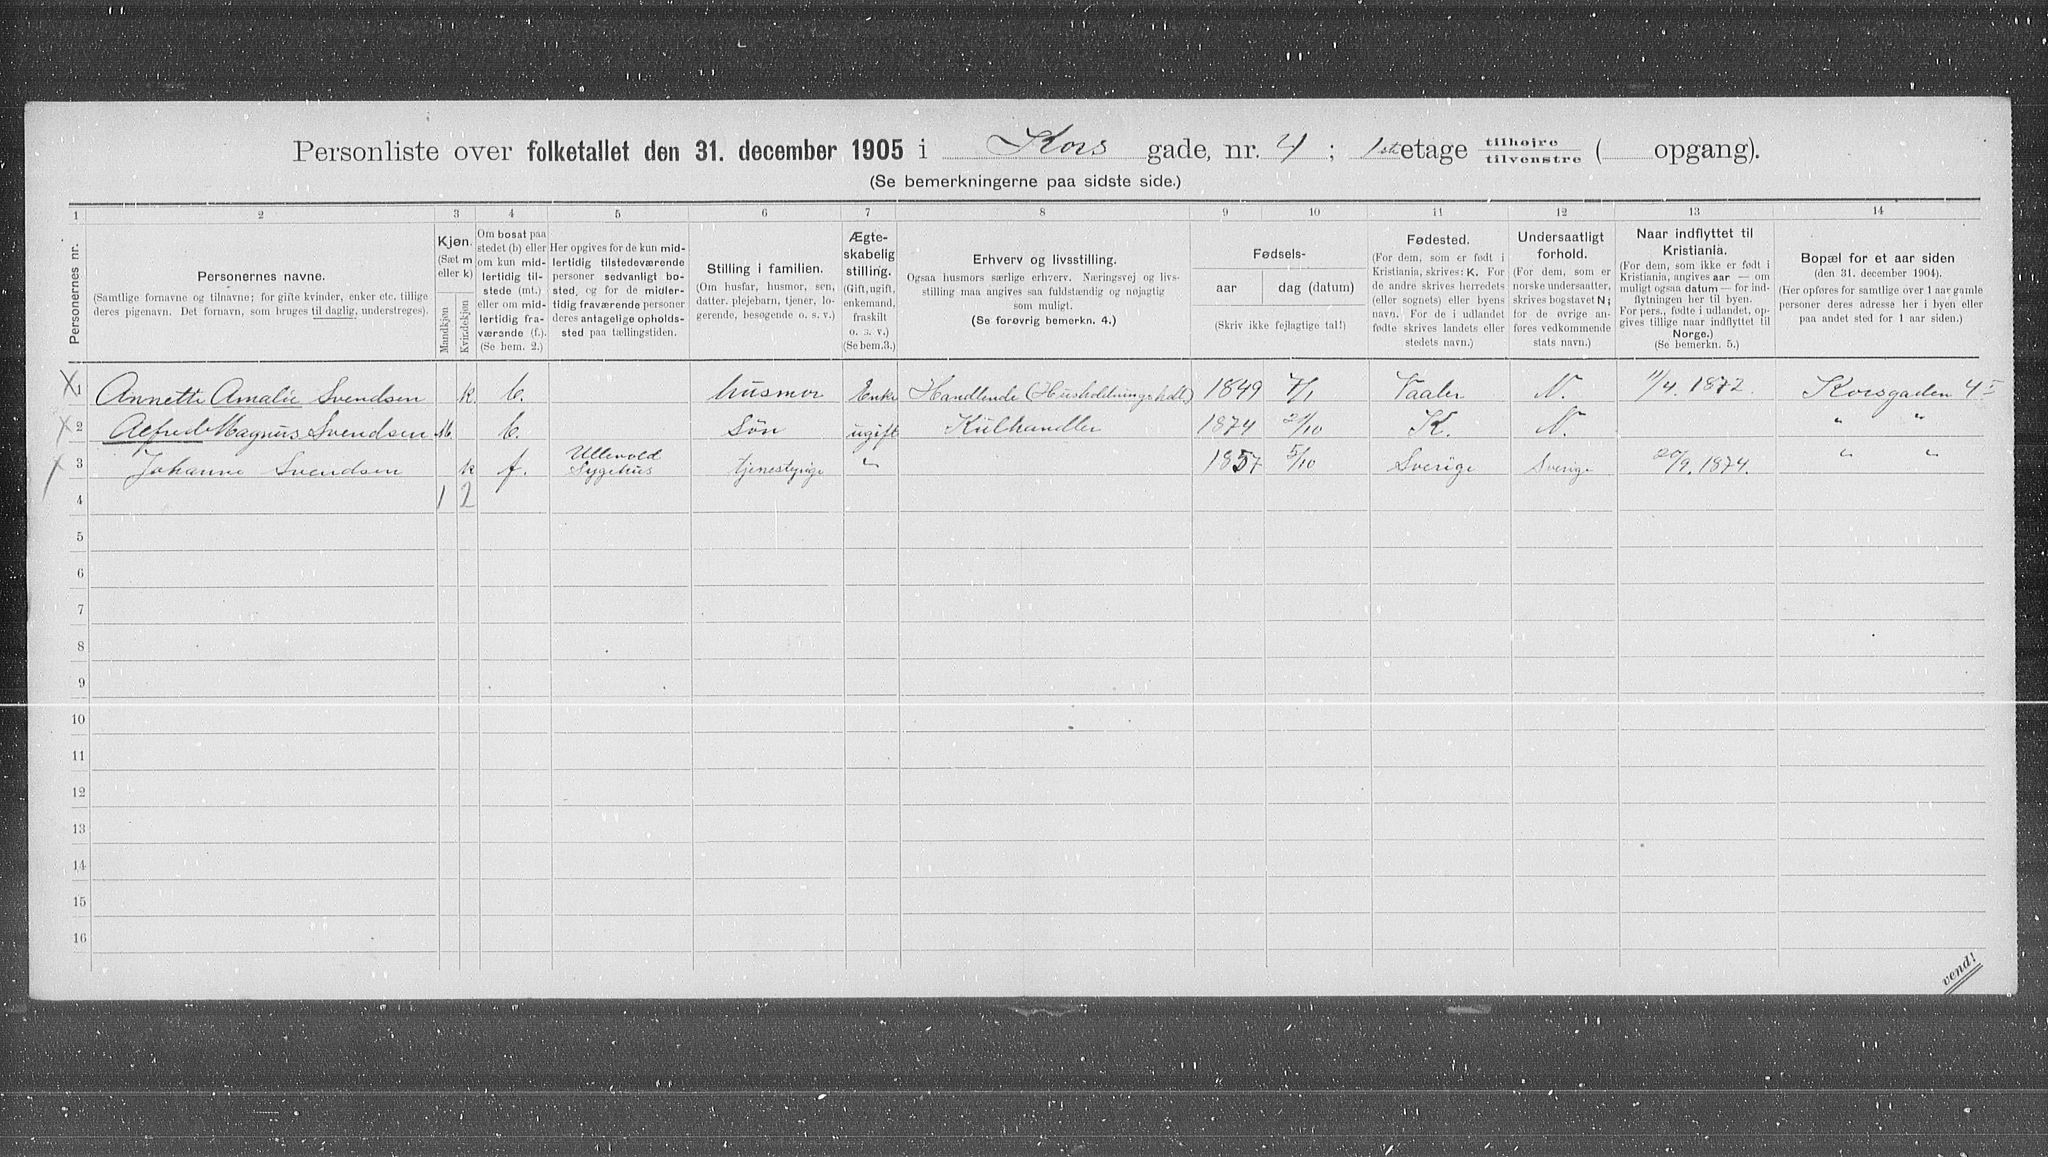 Personliste over folketallet den 31. december 1905 i Kors gade, nr. 4; 1ste etage tilhøjre tilvenstre ( opgang).
(Se bemerkningerne paa sidste side.)
1 2 3 4 5 6 7 8 9 10 11 12 13 14
Personernes nr.
Personernes navne.
(Samtlige fornavne og tilnavne; for gifte kvinder, enker etc. tillige
deres pigenavn. Det fornavn, som bruges til daglig, understreges).
Kjøn.
(Sæt m
eller k)
Mandkjøn
Kvindekjøn
Om bosat paa
stedet (b) eller
om kun mid-
lertidig til-
stede (mt.)
eller om mid-
lertidig fra-
værende (f.).
(Se bem. 2.)
Her opgives for de kun mid-
lertidig tilstedeværende
personer sedvanligt bo-
sted, og for de midler-
tidig fraværende personer
deres antagelige opholds-
sted paa tællingstiden.
Stilling i familien.
(Om husfar, husmor, søn,
datter, plejebarn, tjener, lo-
gerende, besøgende o. s. v.)
Ægte-
skabelig
stilling.
(Gift, ugift,
enkemand,
fraskilt
o. s. v.)
(Se bem.3.)
Erhverv og livsstilling.
Ogsaa husmors særlige erhverv. Næringsvej og livs-
stilling maa angives saa fuldstændig og nøjagtig
som muligt.
(Se forøvrig bemerkn. 4.)
Fødsels-
aar
dag (datum)
(Skriv ikke fejlagtige tal!)
Fødested.
(For dem, som er født i
Kristiania, skrives: K. For
de andre skrives herredets
(eller sognets) eller byens
navn. For de i udlandet
fødte skrives landets eller
stedets navn.)
Undersaatligt
forhold.
(For dem, som er
norske undersaatter,
skrives bogstavet N;
for de øvrige an-
føres vedkommende
stats navn.)
Naar indflyttet til
Kristiania.
(For dem, som ikke er født i
Kristiania, angives aar — om
muligt ogsaa datum — for ind-
flytningen her til byen.
For pers., fødte i udlandet, op-
gives tillige naar indflyttet til
Norge.)
(Se bemerkn. 5.)
Bopæl for et aar siden
(den 31. december 1904).
(Her opføres for samtlige over 1 aar gamle
personer deres adresse her i byen eller
paa andet sted for 1 aar siden.)
X 1 Annette Amalie Svendsen k. b. husmor Enke Handlende (Husholdningshdl) 1849 7/1 Vaaler N. 11/4 1872. Korsgaden 4 I
X 2 Alfred Magnus Svendsen M. b. Søn ugift Kulhandler 1874 21/10 K. N. " "
X 3 Johanne Svendsen k f. Ullevold Sygehus tjenestepige " 1857 5/10 Sverige Sverige 20/9. 1874. " "
4 1 2
5
6
7
8
9
10
11
12
13
14
15
16
vend!